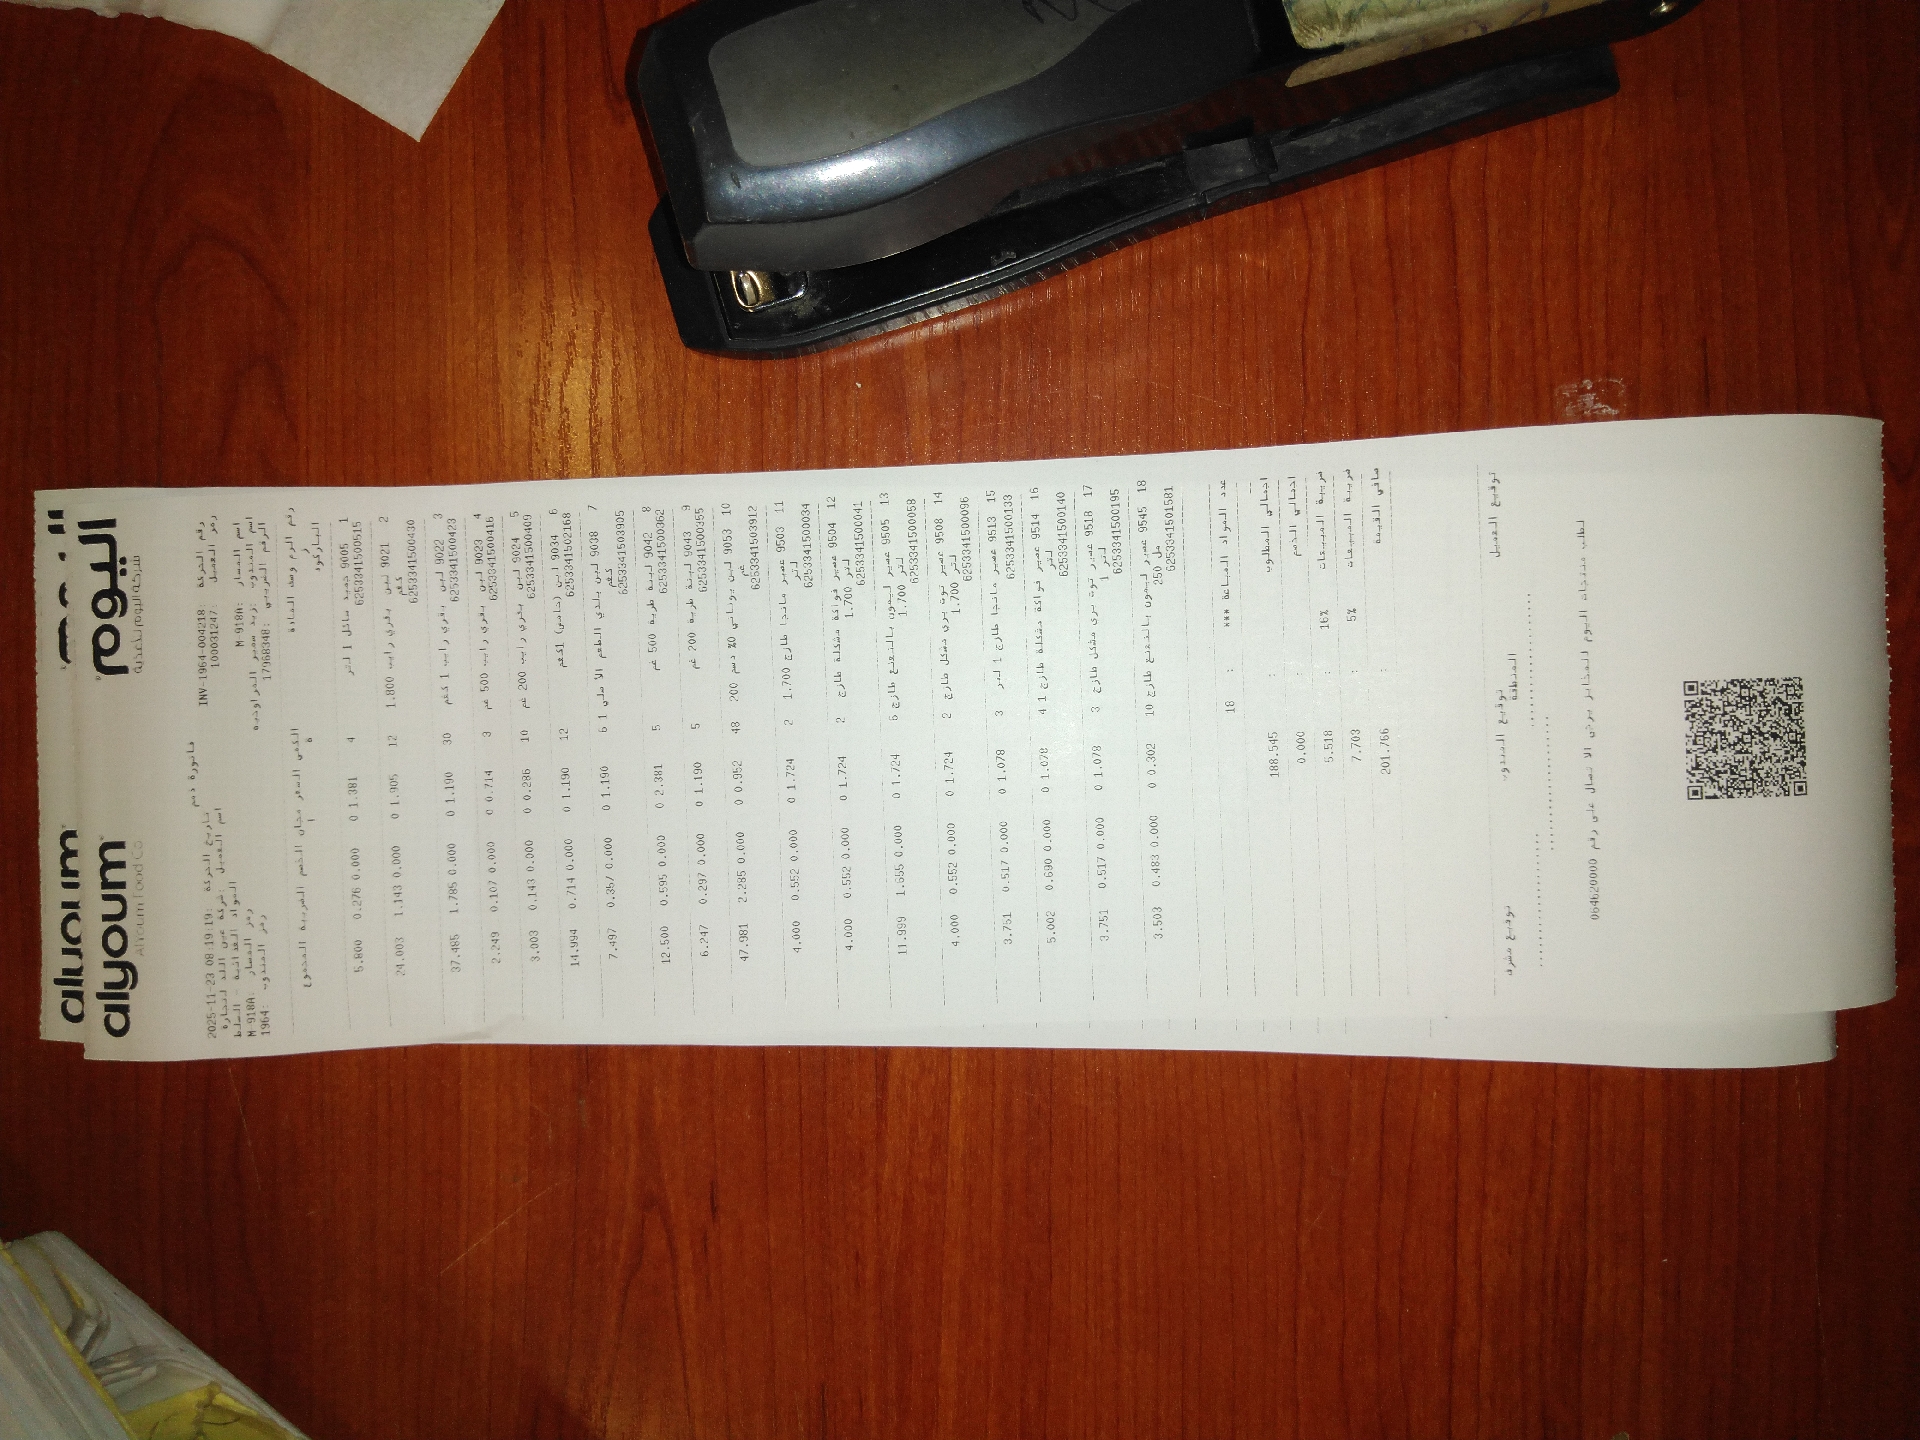 alyoum اليوم
alyoum اليوم
Alyoum Food Co شركة اليوم للأغذية
فاتورة ذمم
رقم الحركة: INV-1964-004218 تاريخ الحركة: 2025-11-23 08:19:19
رمز العميل: 100031247 اسم العميل: شركة عين
المواد الغذائية - السلط
اسم المسار: M-918A رمز المسار: M-918A
اسم المندوب: زيد سمير رمز المندوب: 1964
الرقم الضريبي: 17968348
رقم الرمز وصف المادة الكمية السعر مجاني الخصم الضريبة المجموع
الباركود
1 9005 جميد سائل 1 لتر 4 1.381 0 0.000 0.276 5.800
6253341500515
2 9021 لبن بقري رايب 1.800 12 1.905 0 0.000 1.143 24.003
كغم
6253341500430
3 9022 لبن بقري رايب 1 كغم 30 1.190 0 0.000 1.785 37.485
6253341500423
4 9023 لبن بقري رايب 500 غم 3 0.714 0 0.000 0.107 2.249
6253341500416
5 9024 لبن بقري رايب 200 غم 10 0.286 0 0.000 0.143 3.003
6253341500409
6 9034 لبن (حامض) 1كغم 12 1.190 0 0.000 0.714 14.994
6253341502168
7 9038 لبن بلدي الطعم الاصلي 1 6 1.190 0 0.000 0.357 7.497
كغم
6253341503905
8 9042 لبنة طرية 500 غم 5 2.381 0 0.000 0.595 12.500
6253341500362
9 9043 لبنة طرية 200 غم 5 1.190 0 0.000 0.297 6.247
6253341500355
10 9053 لبن يوناني 0% دسم 200 48 0.952 0 0.000 2.285 47.981
غم
6253341503912
11 9503 عصير مانجا طازج 1.700 2 1.724 0 0.000 0.552 4.000
لتر
6253341500034
12 9504 عصير فواكة مشكلة طازج 2 1.724 0 0.000 0.552 4.000
1.700 لتر
6253341500041
13 9505 عصير ليمون بالنعنع طازج 6 1.724 0 0.000 1.655 11.999
1.700 لتر
6253341500058
14 9508 عصير توت بري مشكل طازج 2 1.724 0 0.000 0.552 4.000
1.700 لتر
6253341500096
15 9513 عصير مانجا طازج 1 لتر 3 1.078 0 0.000 0.517 3.751
6253341500133
16 9514 عصير فواكة مشكلة طازج 1 4 1.078 0 0.000 0.690 5.002
لتر
6253341500140
17 9518 عصير توت بري مشكل طازج 3 1.078 0 0.000 0.517 3.751
1 لتر
6253341500195
18 9545 عصير ليمون بالنعنع طازج 10 0.302 0 0.000 0.483 3.503
250 مل
6253341501581
عدد المواد المباعة *** : 18
اجمالي المطلوب : 188.545
اجمالي الخصم : 0.000
ضريبة المبيعات 16% : 5.518
ضريبة المبيعات 5% : 7.703
صافي القيمة : 201.766
توقيع العميل توقيع المندوب توقيع مشرف
المنطقة
لطلب منتجات اليوم للمخابز يرجى الاتصال على رقم 064620000